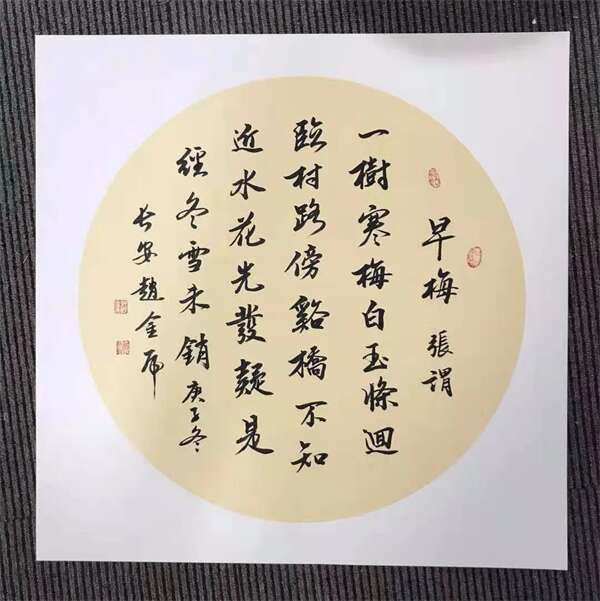 早梅 張謂
一樹寒梅白玉條迴
臨村路傍谿橋不知
近水花先發疑是
經冬雪未銷 庚子冬
長安趙金虎